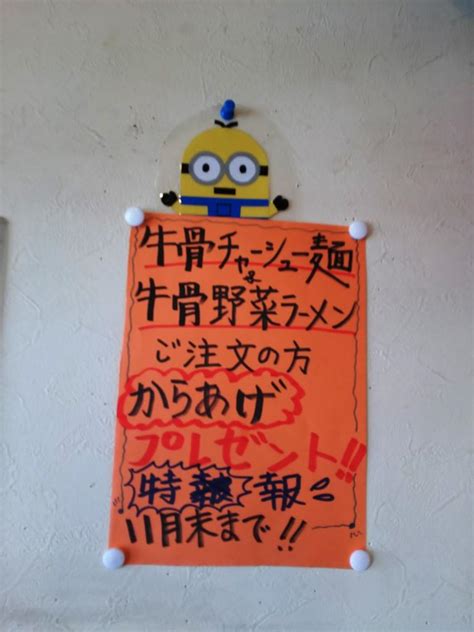 牛骨チャーシュー麺
よ
牛骨野菜ラーメン
ご注文の方
からあげ
プレゼント!!
特報
11月末まで!!